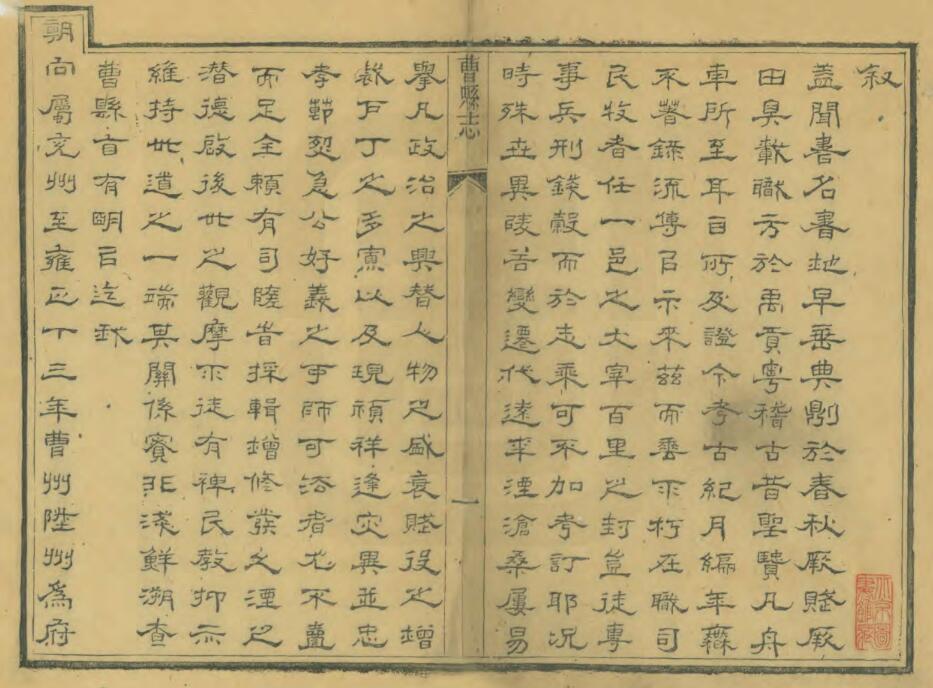 叙
蓋聞書名書地早垂典則於春秋厥賦厥
田具載職方於禹貢粵稽古昔聖賢凡舟
車所至耳目所及證今考古紀月編年靡
不著錄流傳以示來茲而垂不朽在職司
民牧者任一邑之大宰百里之封豈徒專
事兵刑錢穀而於志乘可不加考訂耶況
時殊世異陵谷變遷代遠年湮滄桑屢易
曹縣志
一
舉凡政治之興替人物之盛衰賦役之增
裁戶丁之多寡以及現禎祥逢灾異並忠
孝節烈急公好義之可師可法者尤不盡
而足全賴有司隨旹採輯增修發久湮之
潛德啟後世之觀摩不徒有裨民教抑亦
維持世道之一端其關係實非淺鮮溯查
曹縣自有明以迄我
朝向屬兗州至雍正十三年曹州陞州為府